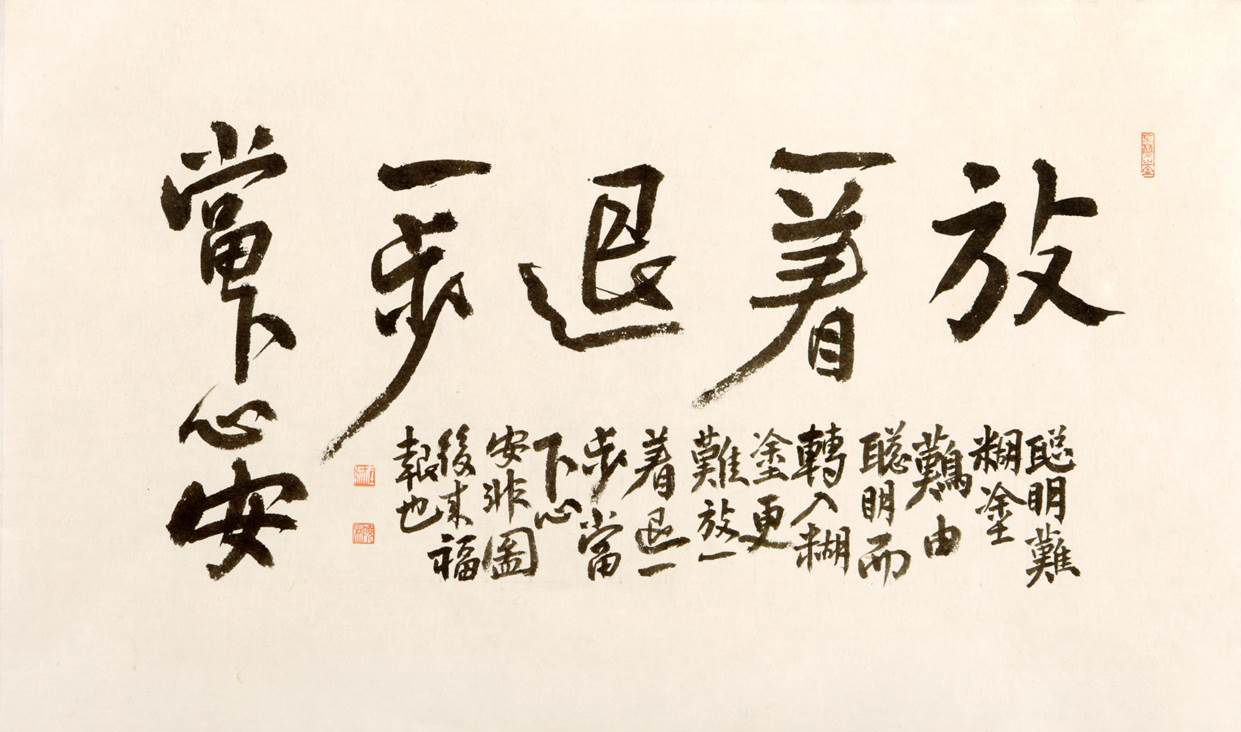 放
一着
退
一步
當下心安
聰明難
糊塗
難由
聰明而
轉入糊
塗更
難放一
着退一
步當
下心
安非圖
後来福
報也